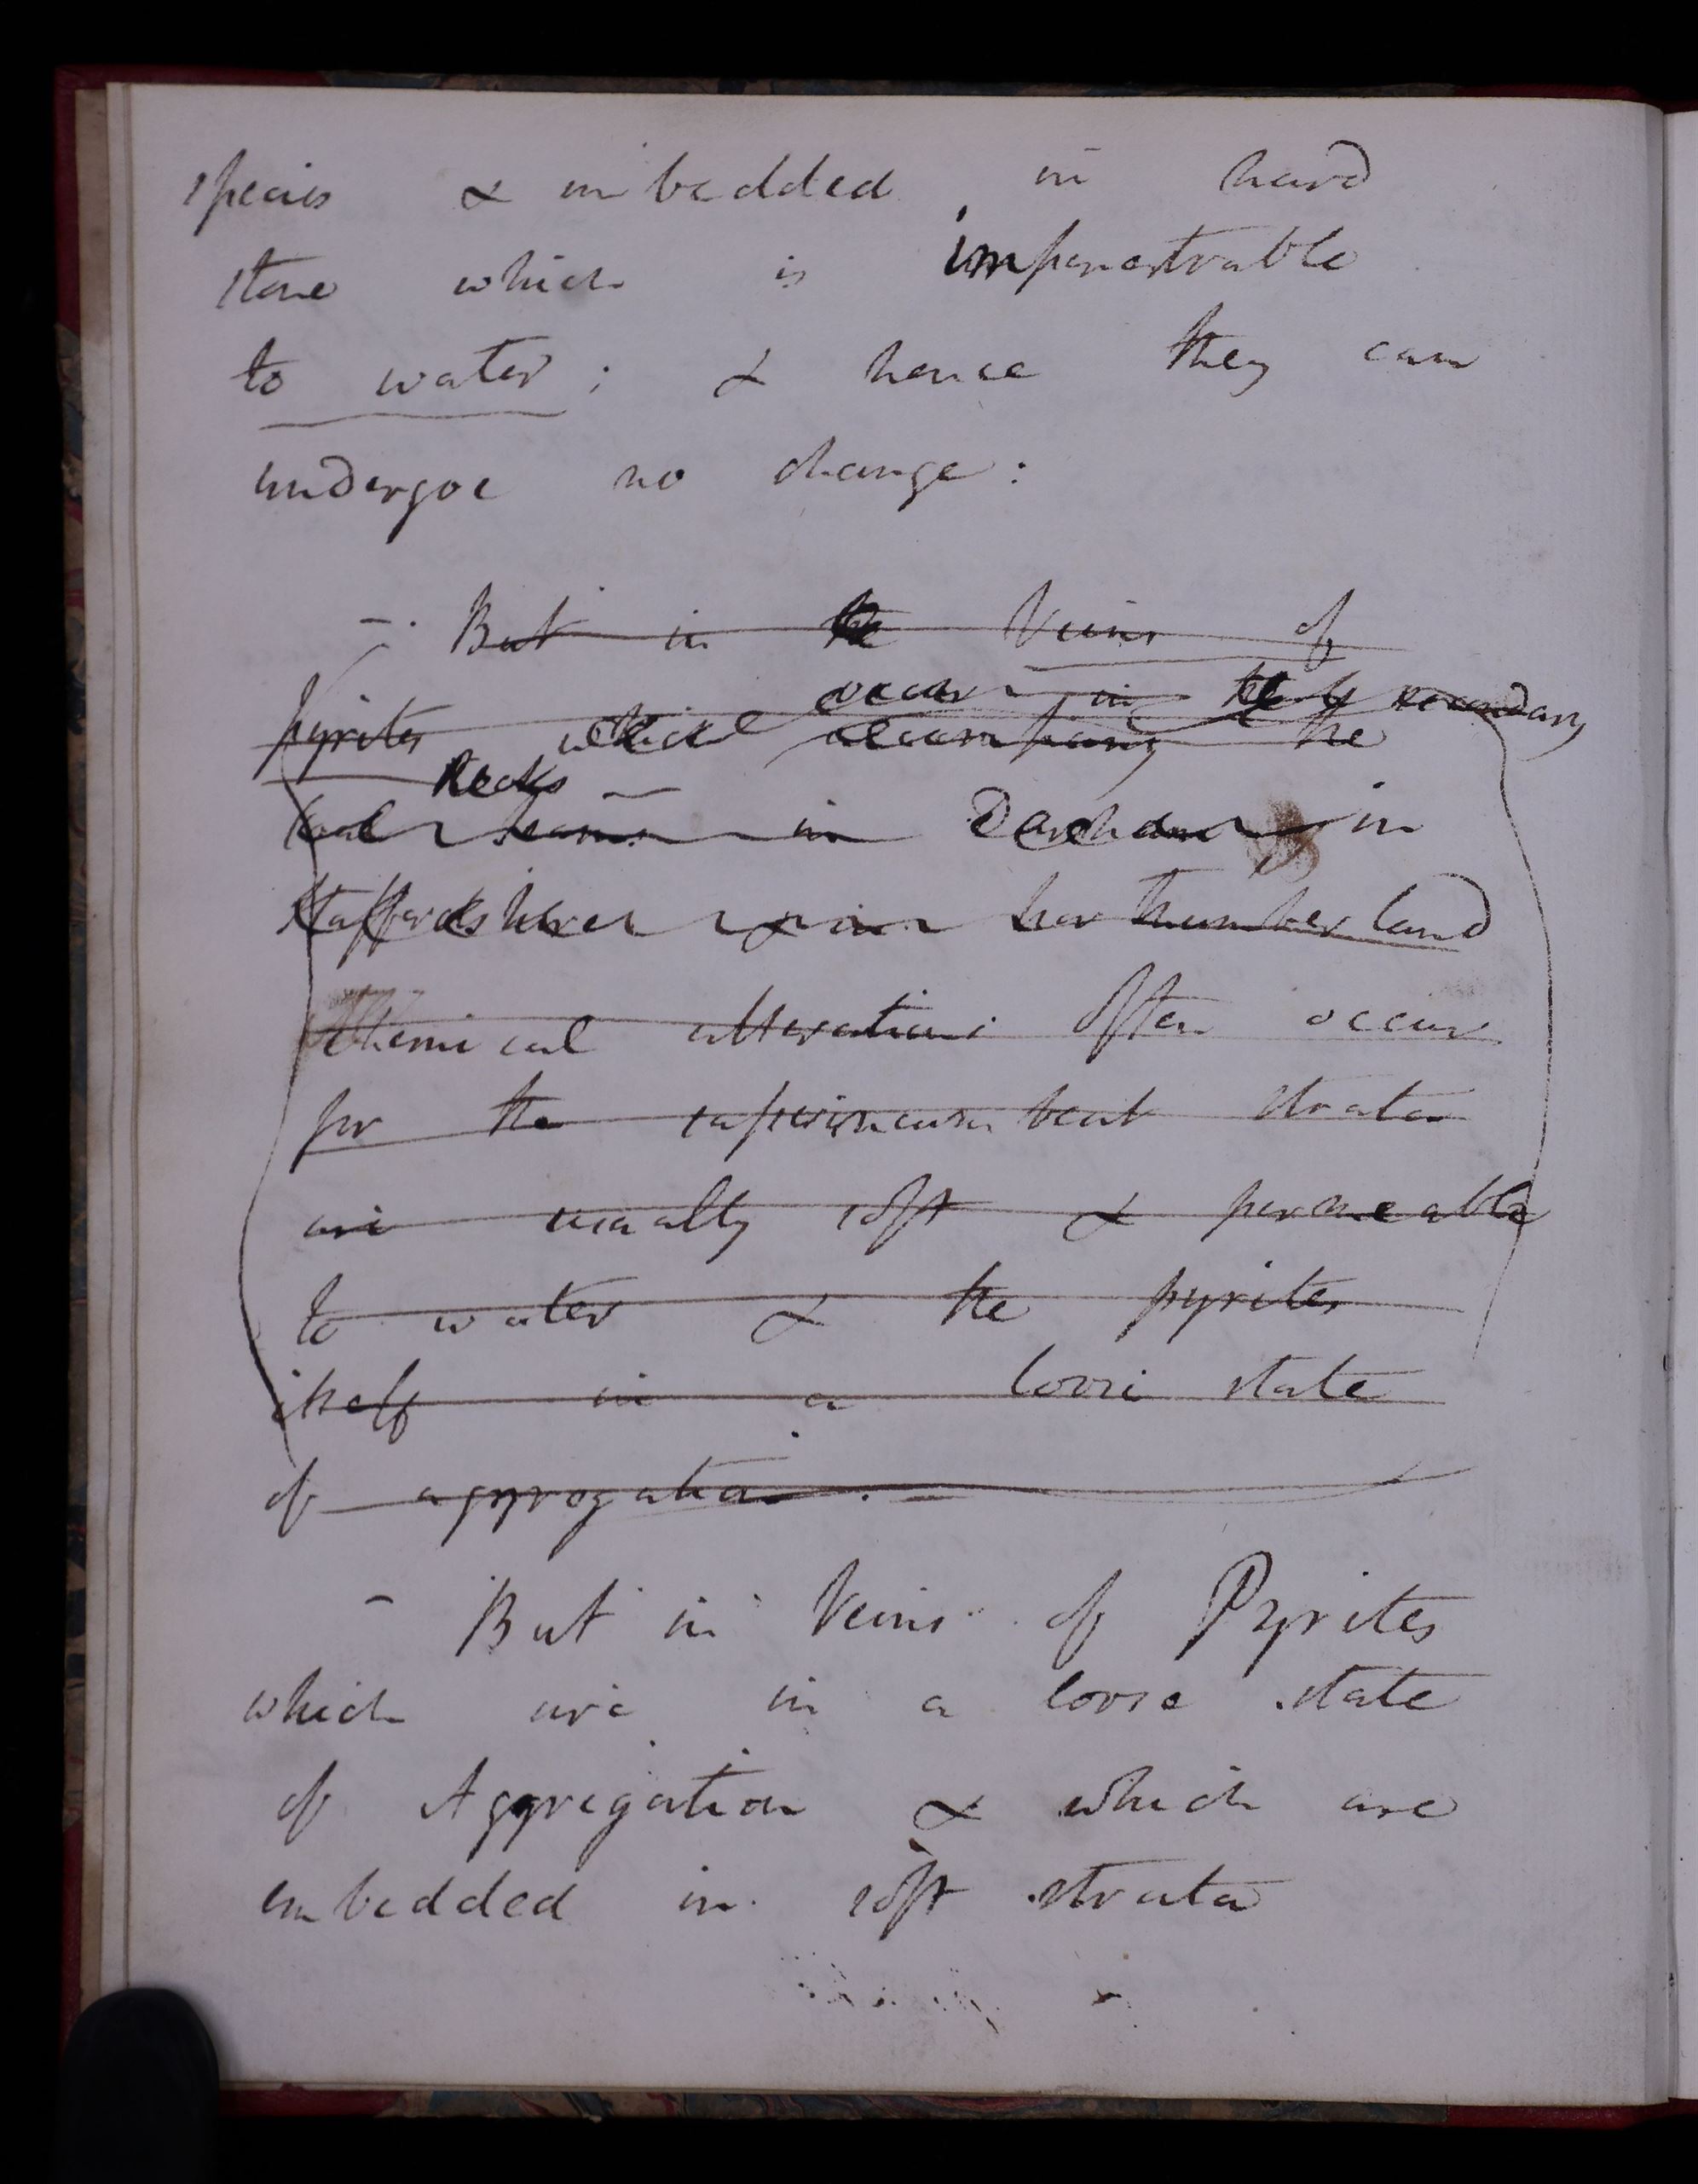 species & imbedded in hard
stone which is impenetrable
to water; & hence they can
undergoe no change:
- But in the Veins of
occur in the secondary
pyrites which accompany the
Rocks
Coal seams in Durham in
Staffordshire & in Northumberland
Chemical alterations often occur
for the superincumbent strata
are usually soft & permeable
to water & the pyrites
itself in a loose state
of aggregation.
- But in Veins of Pyrites
which are in a loose state
of Aggregation & which are
embedded in soft strata